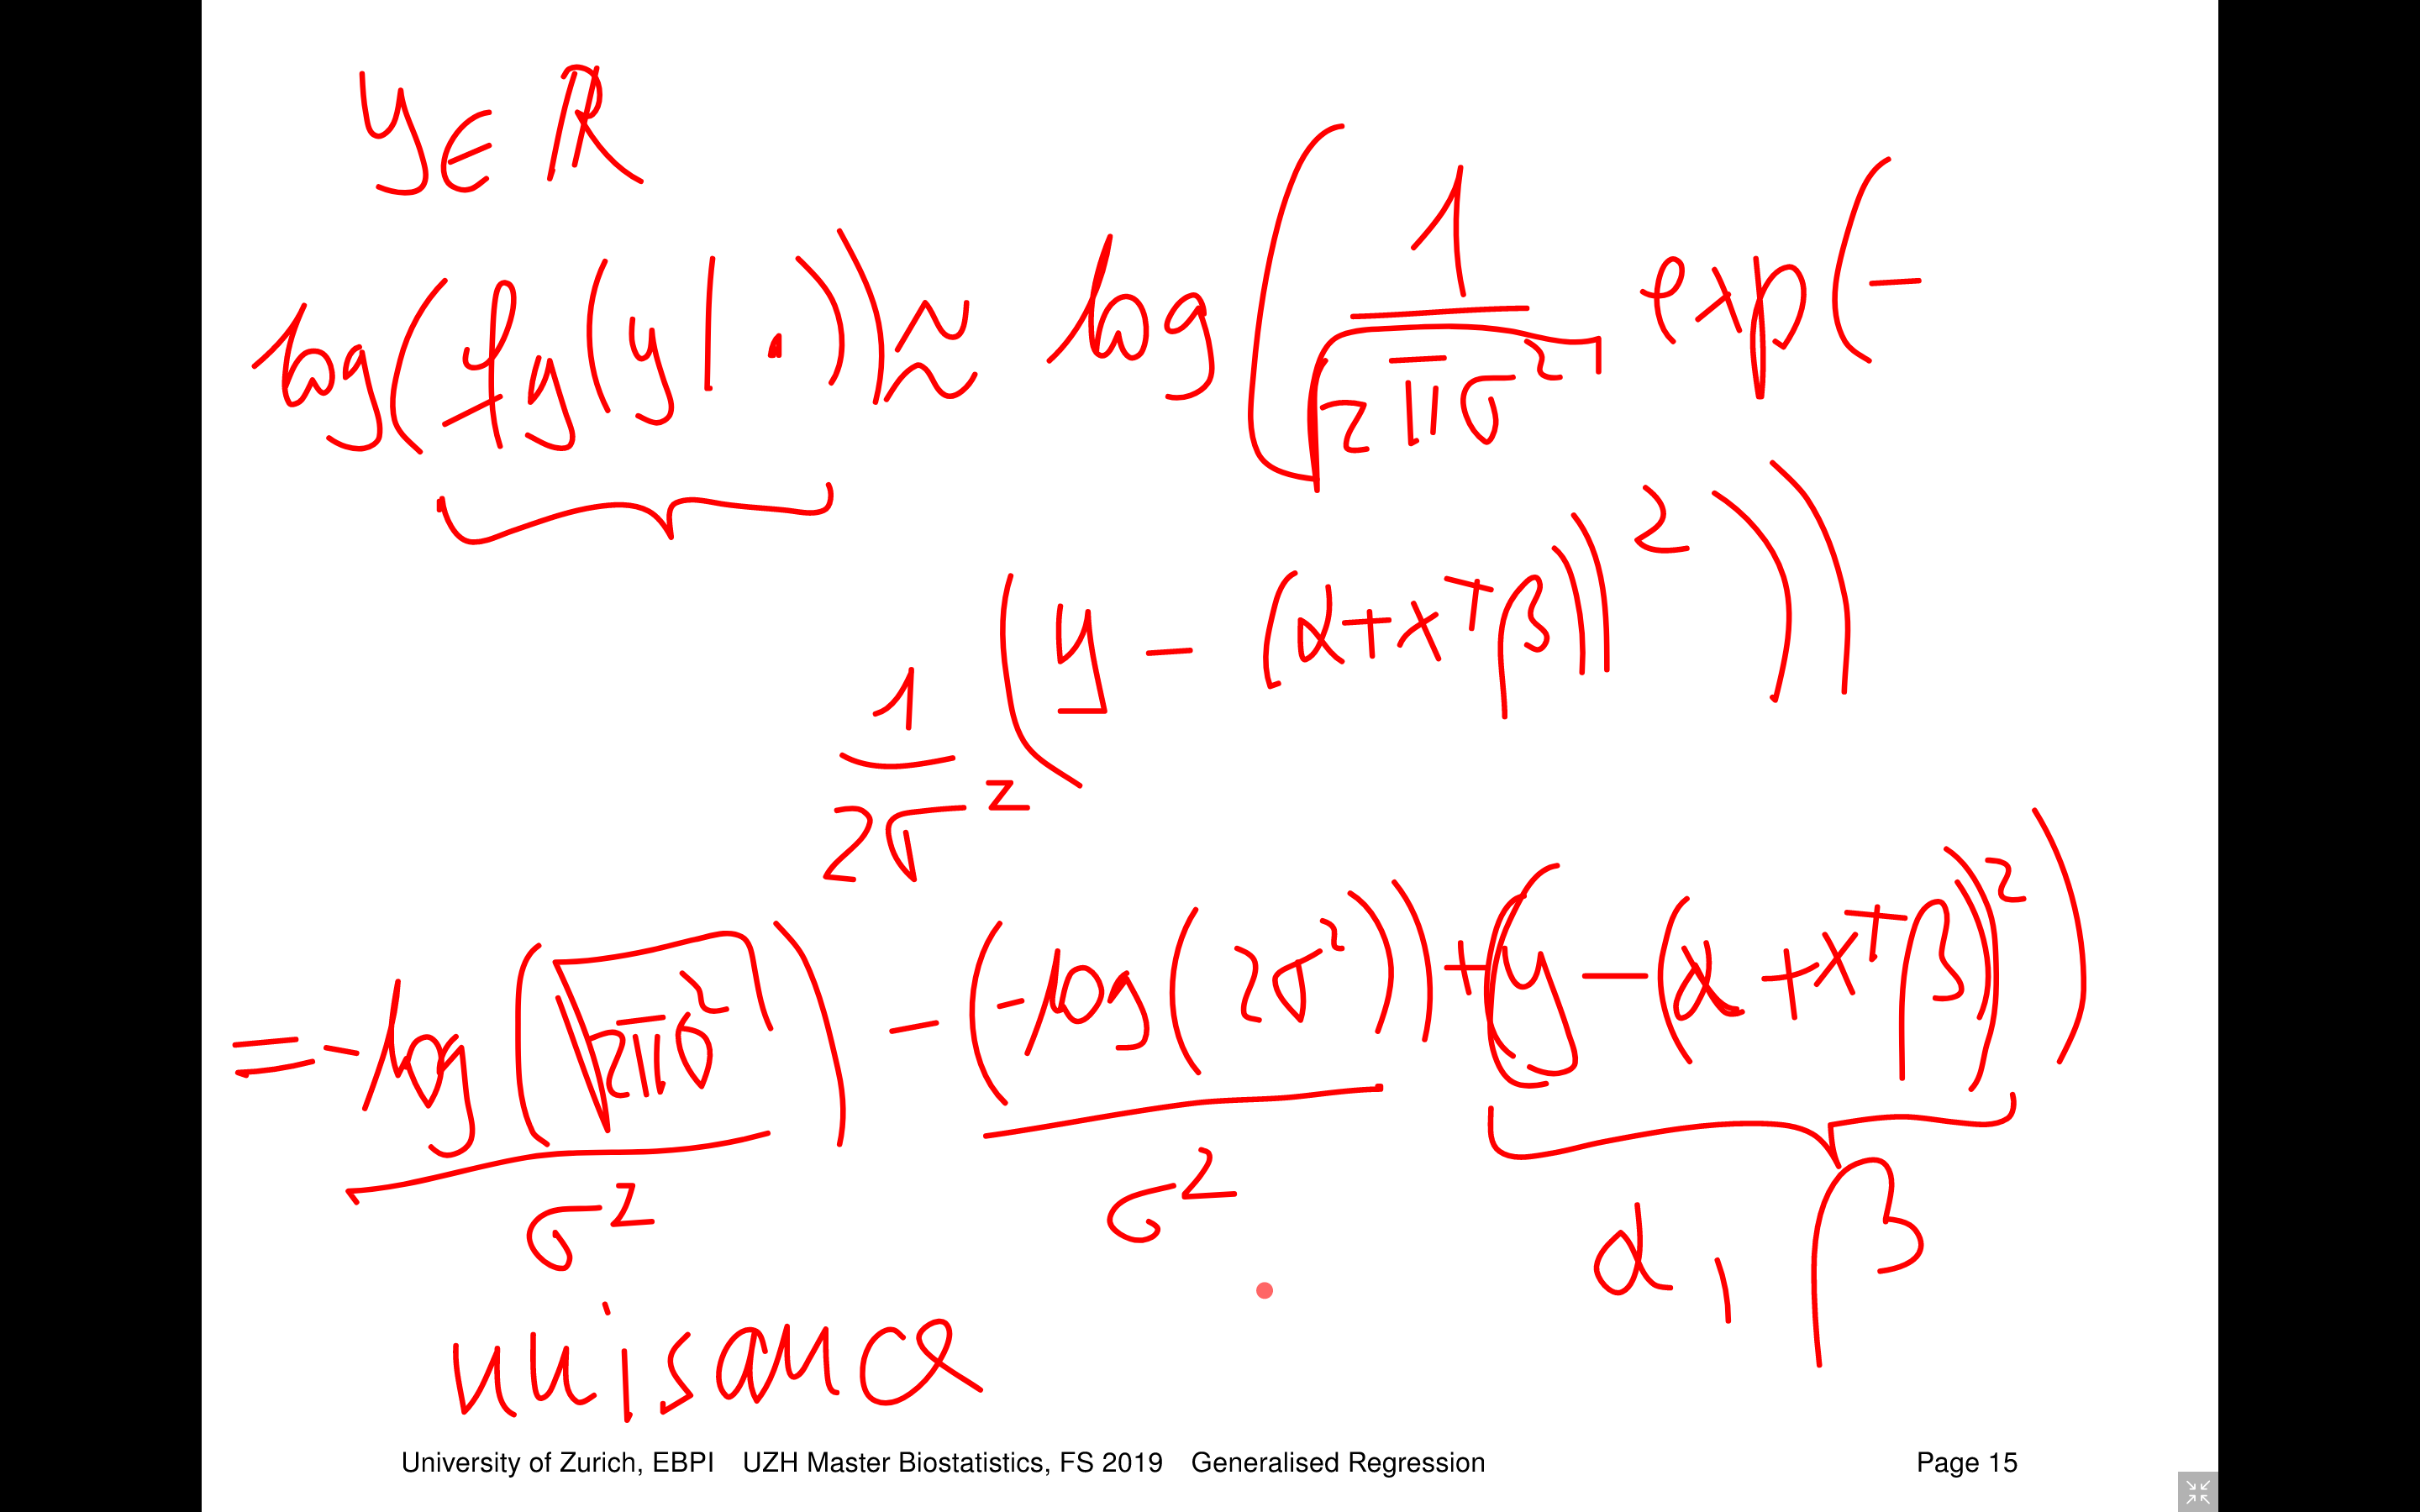 y ∈ ℝ
log(f_y(y|·)) ≈ log(1/√(2πσ²) exp(−
1/(2σ²) (y − (α + x^T β))²))
= −log(√(2πσ²)) − (−log(2σ²)) + (y − (α + x^T β))²)
σ² σ² α, β
nuisance
University of Zurich, EBPI UZH Master Biostatistics, FS 2019 Generalised Regression Page 15